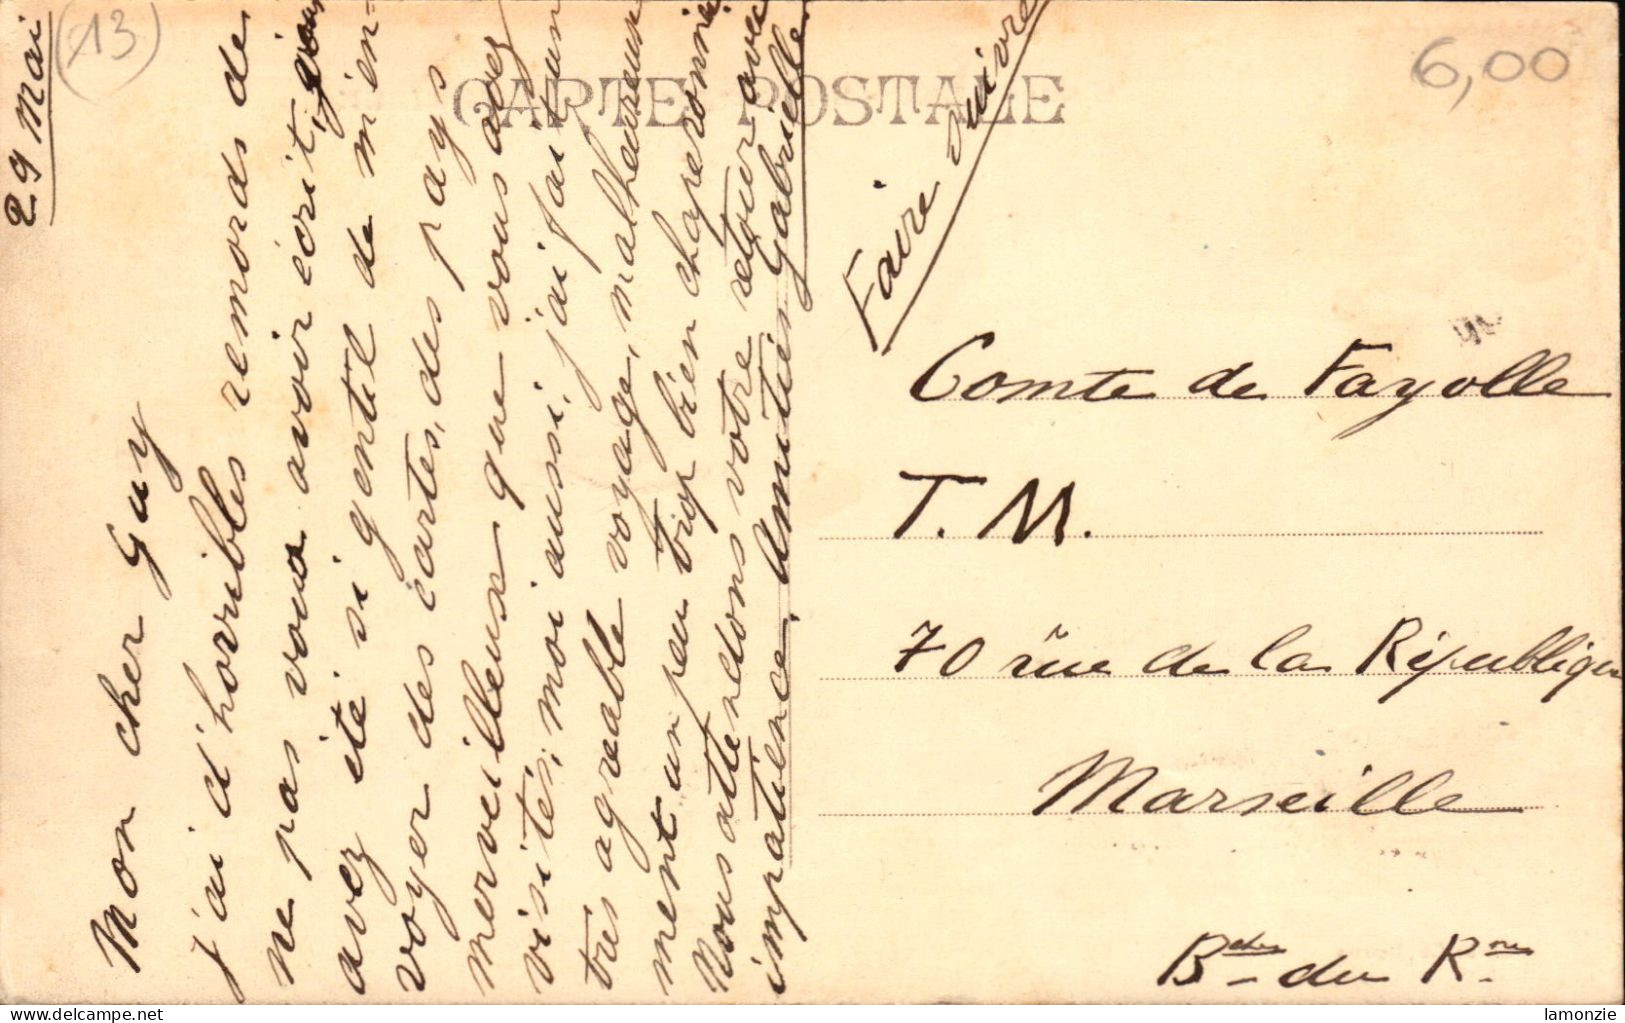 29 Mai
(13)
Mon cher Guy
j'ai d'horribles remords de
ne pas vous avoir écrit, vous
avez été si gentil de m'en-
voyer des cartes, des pays
merveilleux que vous avez
visités, moi aussi, j'ai fait un
très agreable voyage, malheureuse
ment un peu trop bien chaperonnée
Nous attendons votre retour avec
impatience, Amitiés Gabrielle
CARTE POSTALE
6,00
Faire suivre
Comte de Fayolle
T. M.
70 rue de la République
Marseille
Bches du Rne
lamonzie